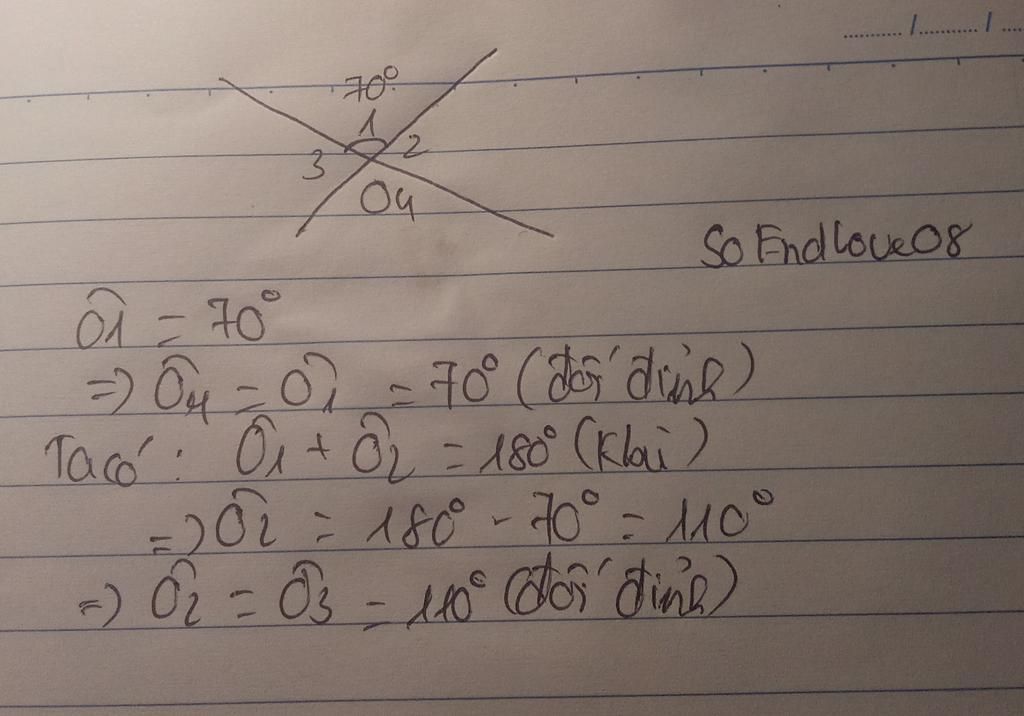 ....../....../....
70°
1
3 2
O4
SoEndLove08
Ô1 = 70°
=> Ô4 = Ô1 = 70° (đối đỉnh)
Ta có: Ô1 + Ô2 = 180° (Kbù)
=> Ô2 = 180° - 70° = 110°
=> Ô2 = Ô3 = 110° (đối đỉnh)